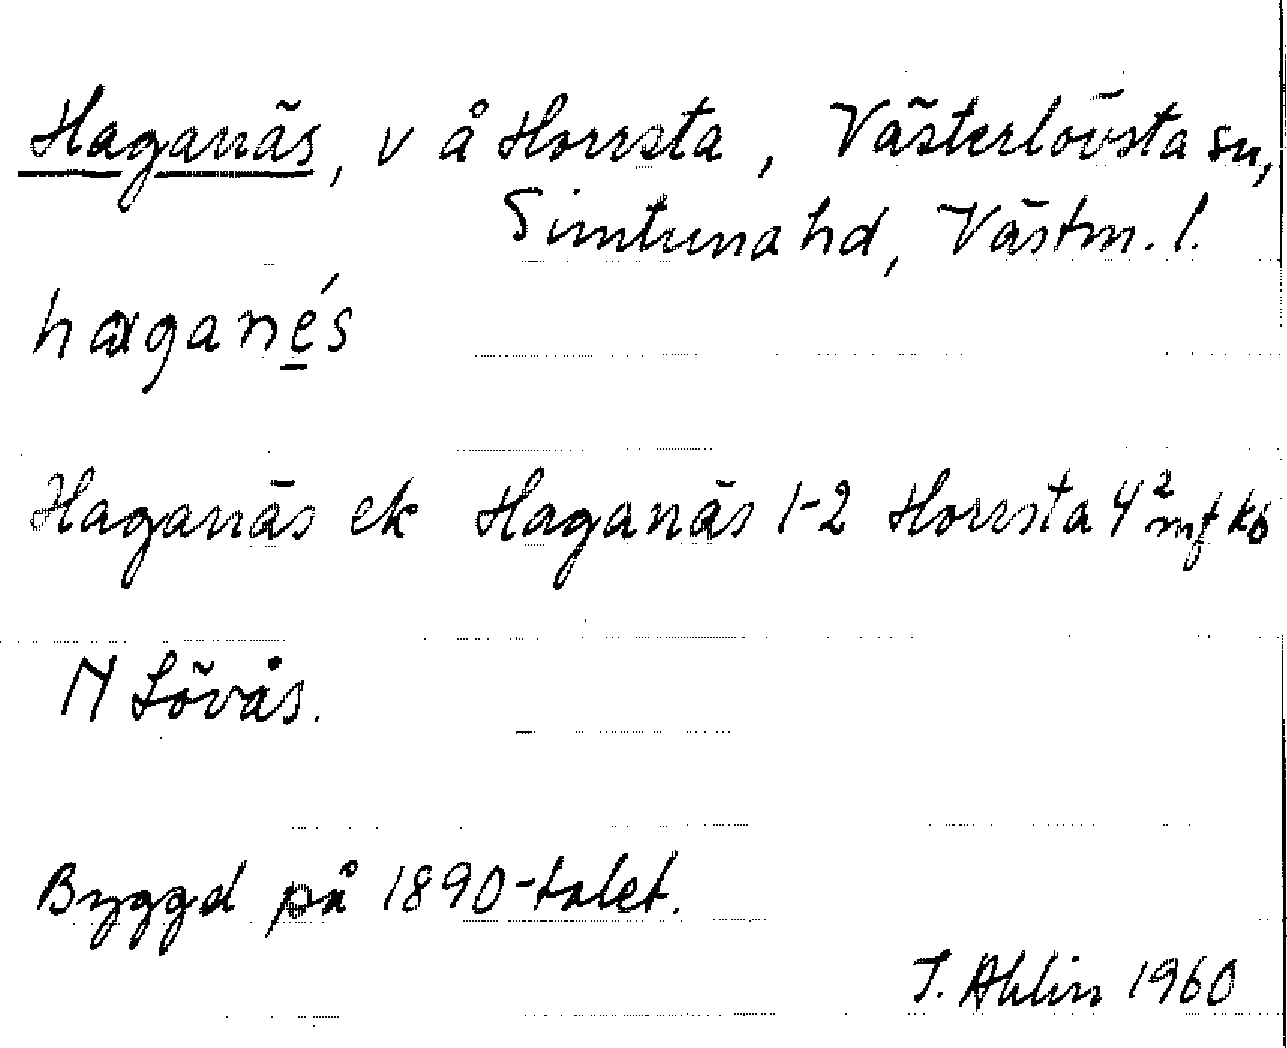 Haganäs, v å Horrsta, Västerlövsta sn,
Simtuna hd, Västm. l.
haganés
Haganäs ek Haganäs 1-2 Horrsta 4² mf kb
N Lövås.
Byggd på 1890-talet.
T. Ahlin 1960